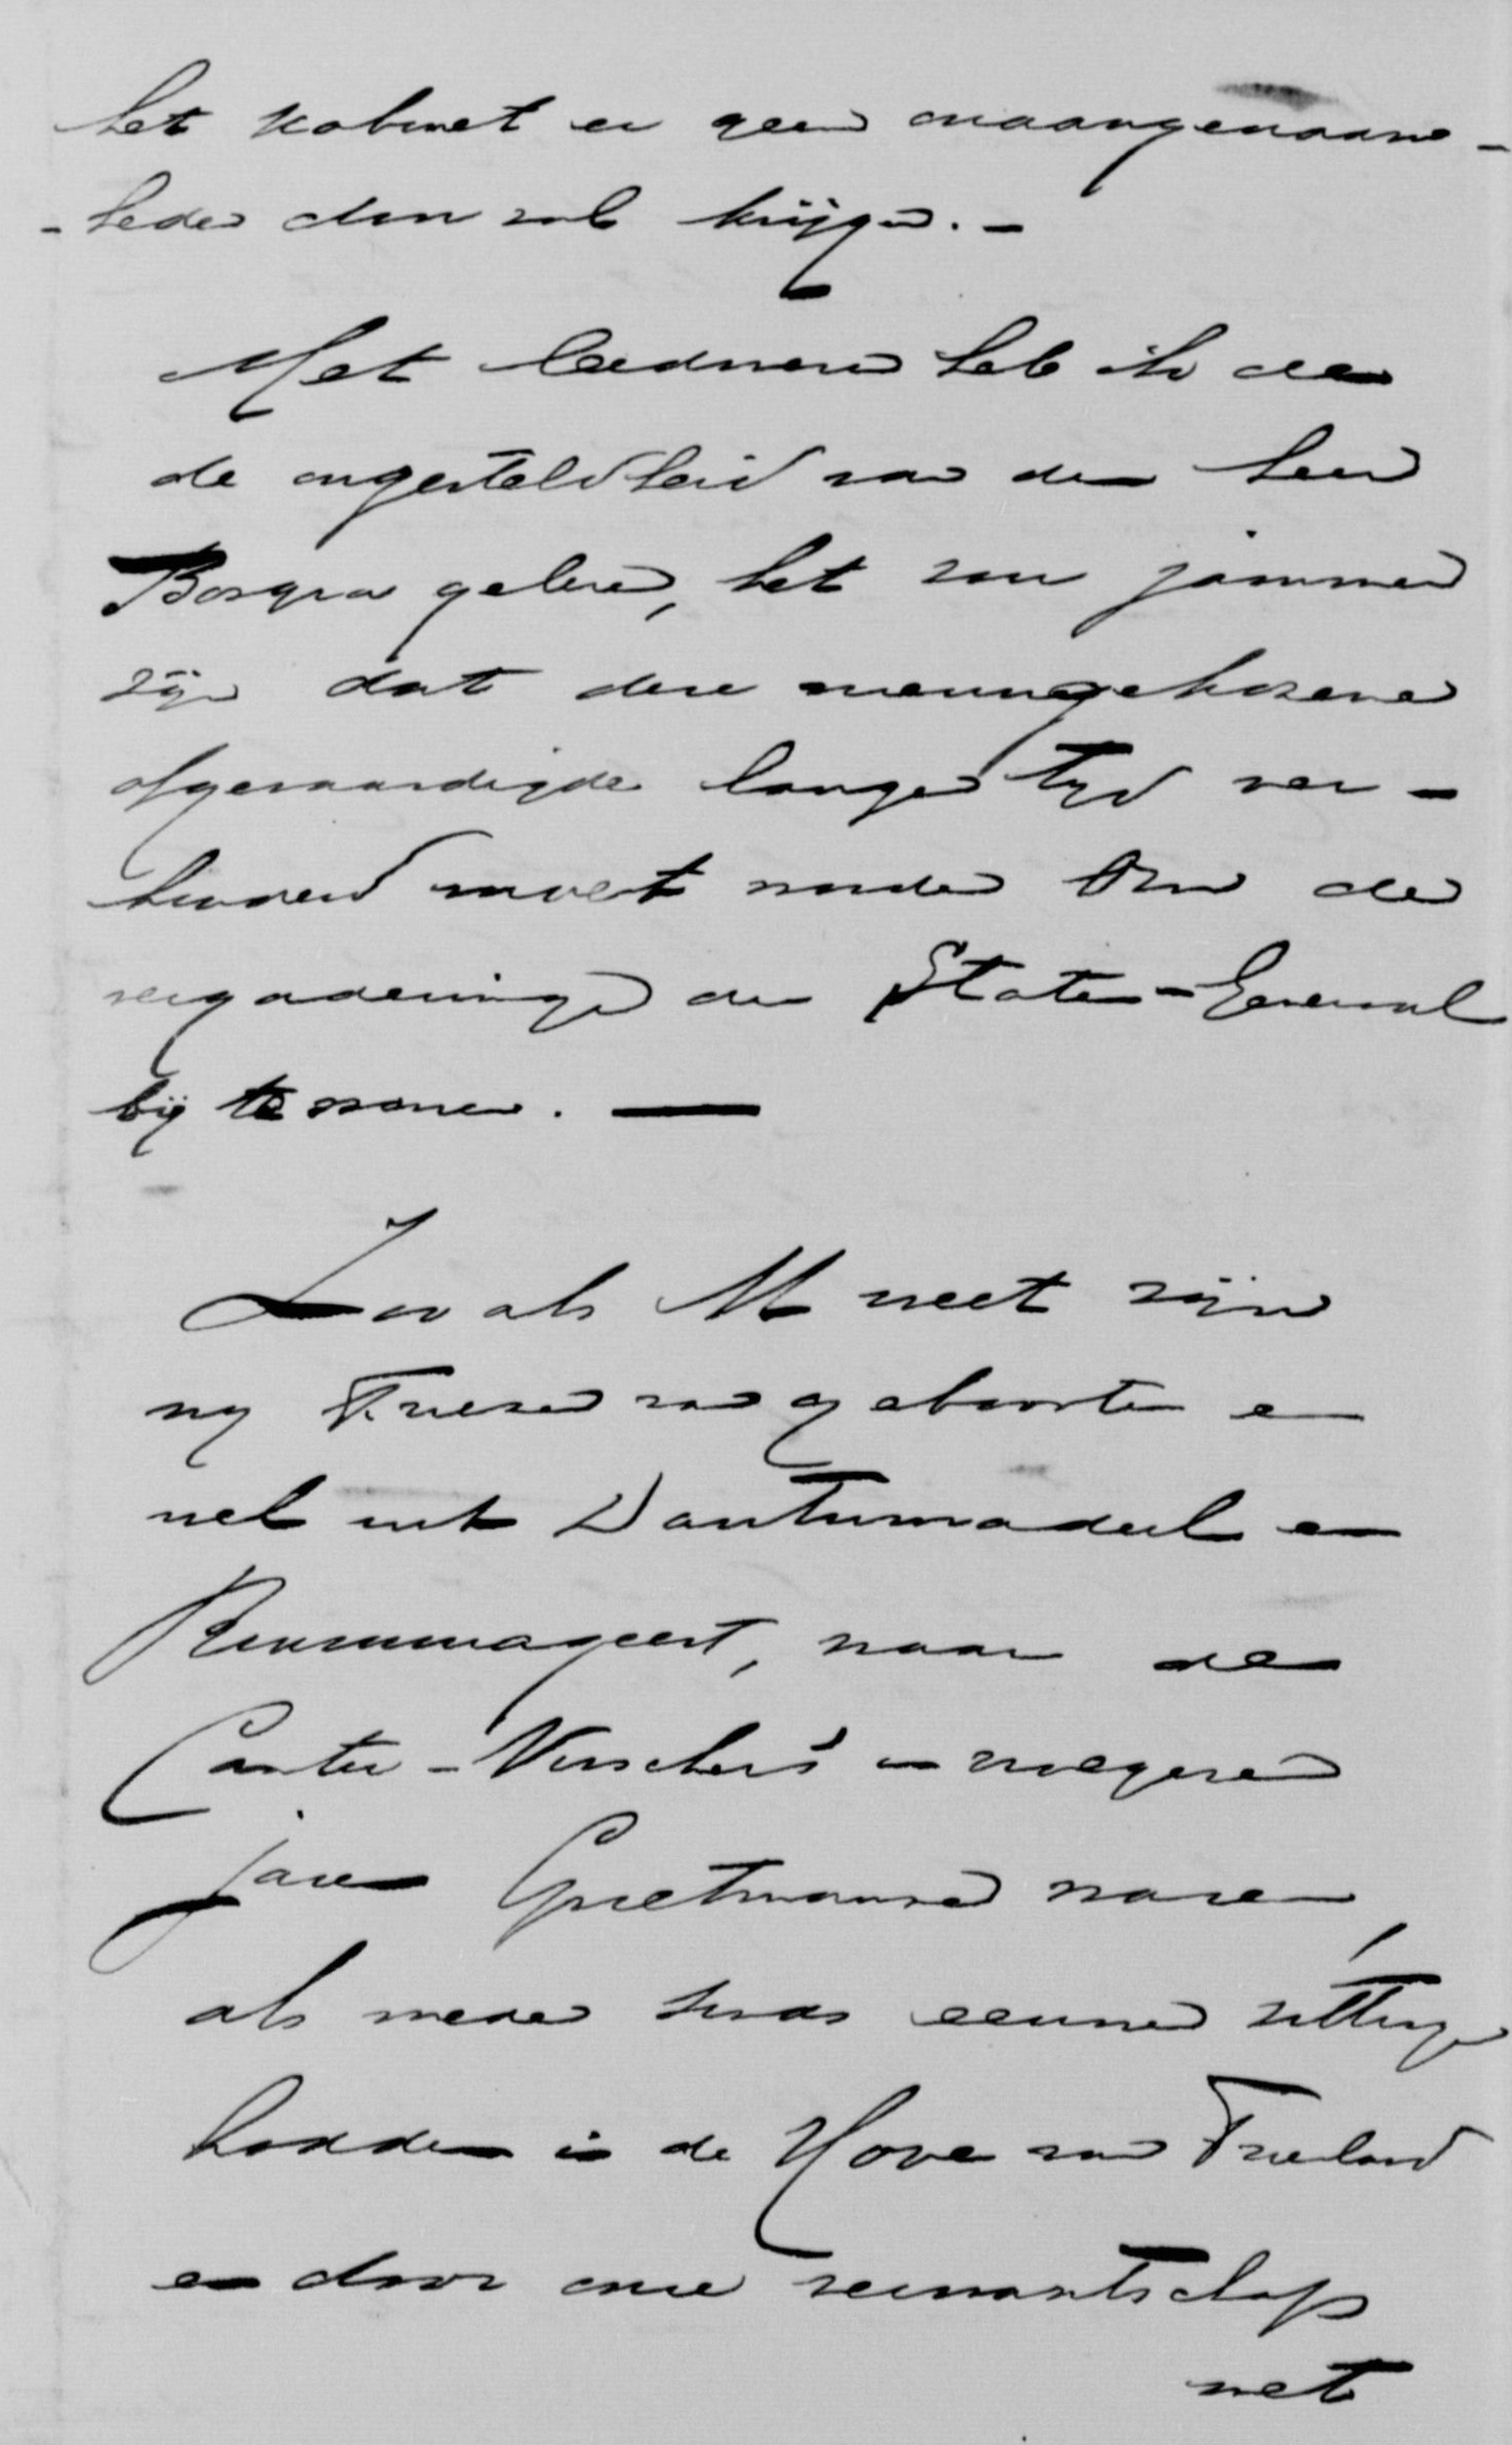 het kabinet er geen onaangenaam-
-heden door zal krijgen. -
Met leedwezen heb ik de
de ongesteldheid van den heer
Bosgra gelezen, het zou jammer
zijn dat deze nieuwgekozene
afgevaardigde langer tijd ver-
hinderd moest worden om de
vergaderingen der Staten-Generaal
bij te wonen. —
Zoo als U weet zijn
wij Friezen van geboorte en
wel uit Dantumadeel en
Rinsumageest, waar de
Canter-Visscher's in vroegere
jaren Grietmannen waren,
als mede sinds eeuwen zitting
hadden in de Hove van Friesland
en door onze verwantschap
met